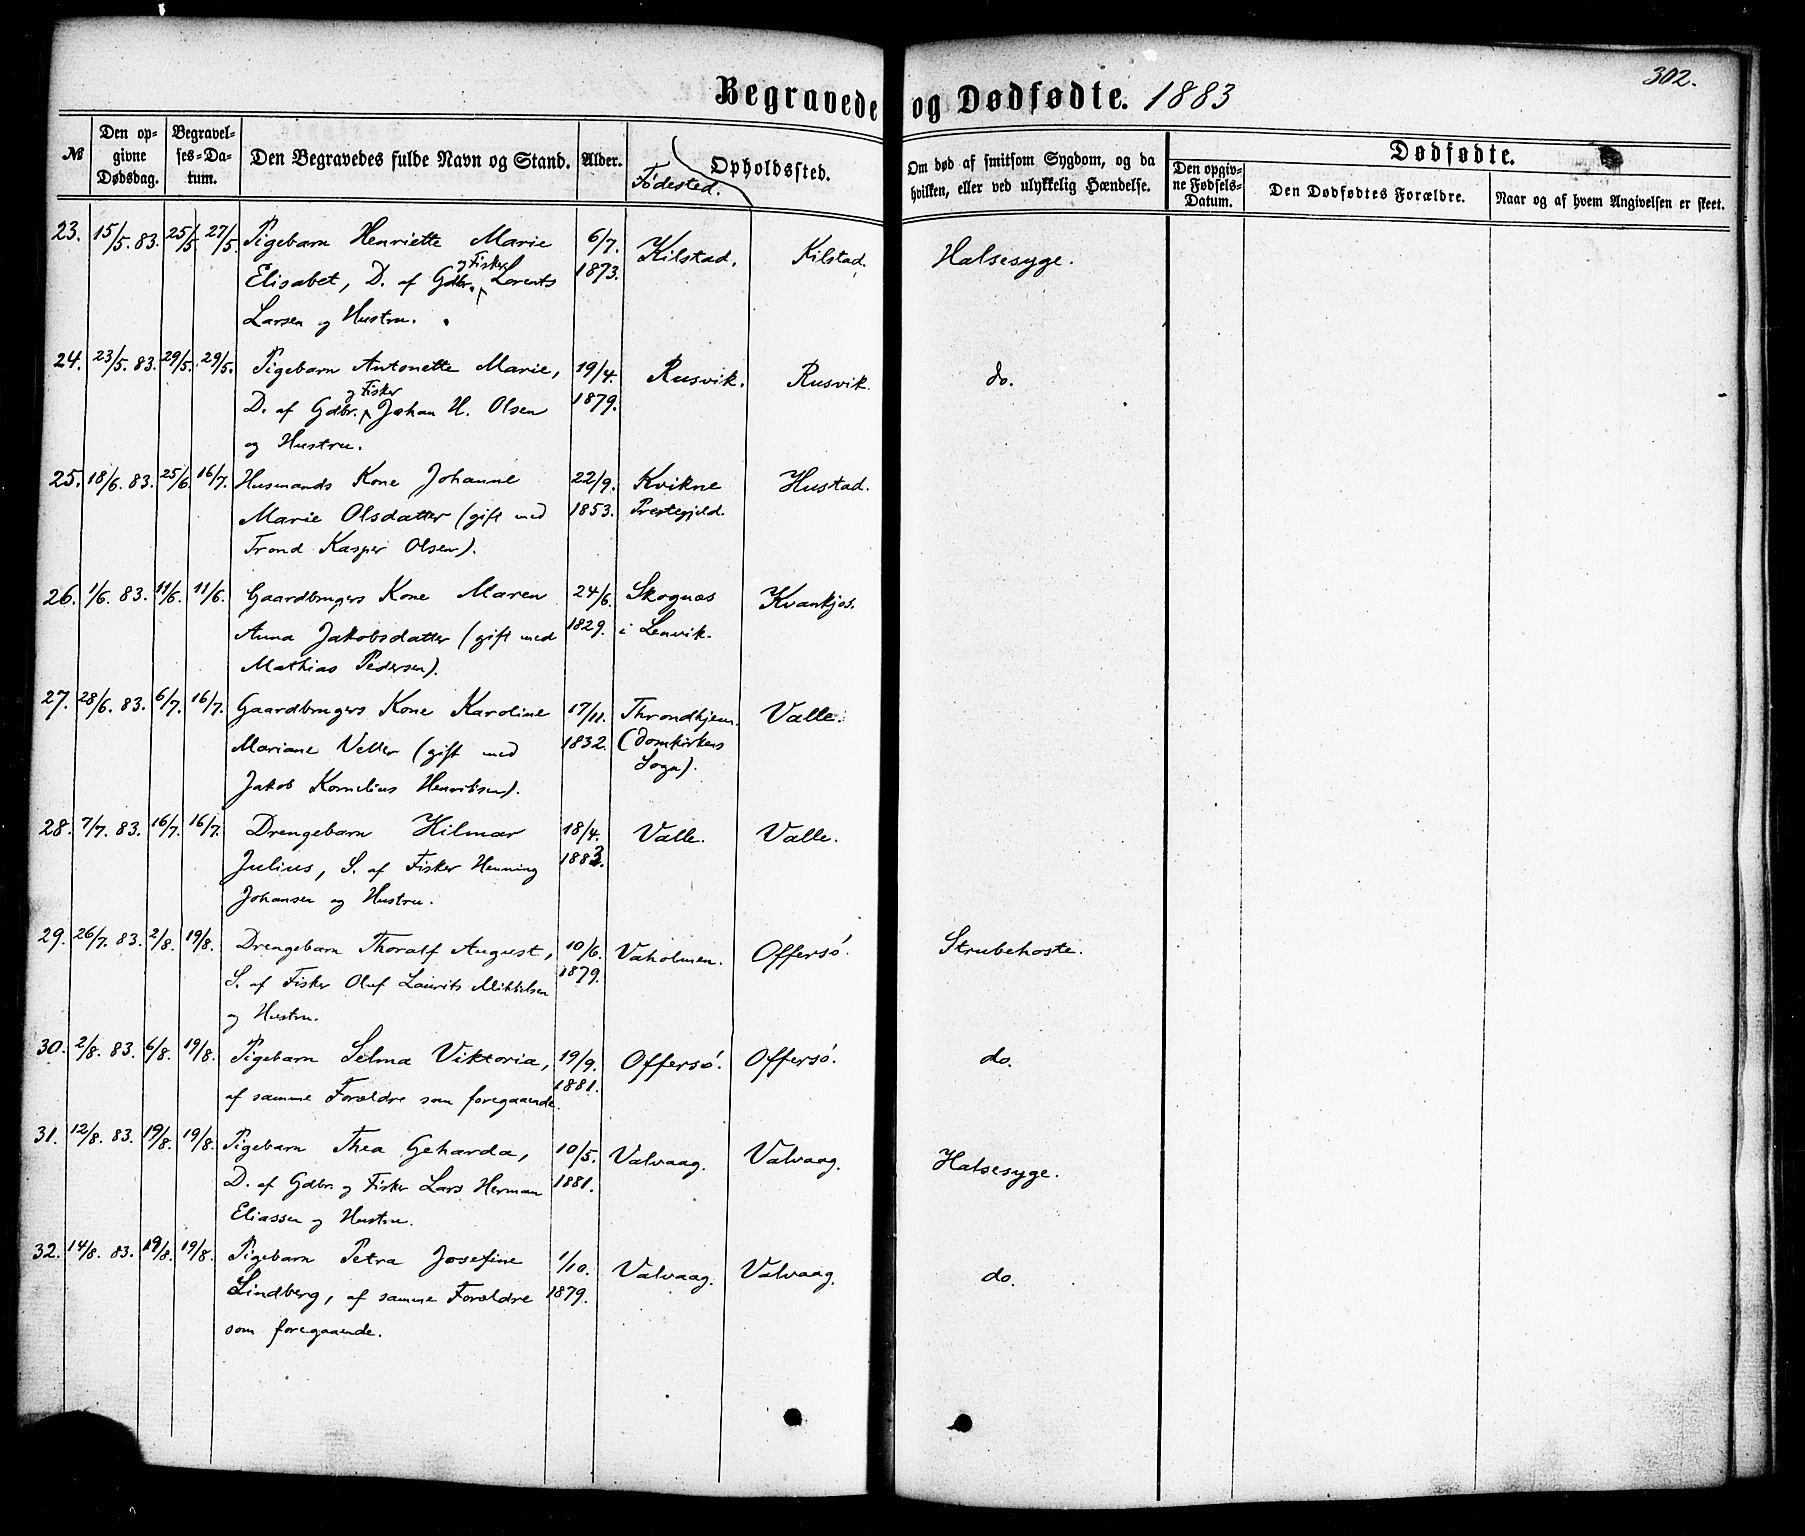 302.
Begravede og Dødfødte. 1883
№ | Den opgivne Dødsdag. | Begravelses-Datum. | Den Begravedes fulde Navn og Stand. | Alder. | Fødested. | Opholdssted. | Om død af smitsom Sygdom, og da hvilken, eller ved ulykkelig Hændelse. | Dødfødte. | Den opgivne Fødsels-Datum. | Den Dødfødtes Forældre. | Naar og af hvem Angivelsen er skeet.
23. 15/5. 83. 25/5 27/5. Pigebarn Henriette Marie 6/7. Kilstad. Kilstad. Halsesyge.
og Fisker
Elisabet, D. af Gdbr. Lorents 1873.
Larsen og Hustru.
24. 23/5. 83. 29/5. 29/5. Pigebarn Antonette Marie, 19/4. Rusvik. Rusvik. do.
og Fisker
D. af Gdbr. Johan H. Olsen 1879.
og Hustru.
25. 18/6. 83. 25/6. 16/7. Husmands Kone Johanne 22/9. Kvikne Hustad.
Marie Olsdatter (gift med 1853. Prestegjeld.
Trond Kasper Olsen).
26. 1/6. 83. 11/6. 11/6. Gaardbrugers Kone Maren 24/6. Skognæs Kvankjos.
Anna Jakobsdatter (gift med 1829. i Lenvik.
Mathias Pedersen).
27. 28/6. 83. 6/7. 16/7. Gaardbrugers Kone Karoline 17/11. Throndhjem. Valle.
Mariane Veller (gift med 1832. (Domkirkens
Jakob Kornelius Henriksen). Sogn).
28. 7/7. 83. 16/7. 16/7. Drengebarn Hilmar 18/4. Valle. Valle.
Julius, S. af Fisker Henning 1883.
Johansen og Hustru.
29. 26/7. 83. 2/8. 19/8. Drengebarn Thoralf August, 10/6. Vaholmen. Offersö. Strubehoste.
S. af Fisker Oluf Laurits Mikkelsen 1879.
og Hustru.
30. 2/8. 83. 6/8. 19/8. Pigebarn Selma Viktoria, 19/9. Offersö. Offersö. do.
af samme Forældre som foregaaende. 1881.
31. 12/8. 83. 19/8. 19/8. Pigebarn Thea Geharda, 10/5. Valvaag. Valvaag. Halsesyge.
D. af Gdbr. og Fisker Lars Herman 1881.
Eliassen og Hustru.
32. 14/8. 83. 19/8. 19/8. Pigebarn Petra Josefine 1/10. Valvaag. Valvaag. do.
Lindberg, af samme Forældre 1879.
som foregaaende.